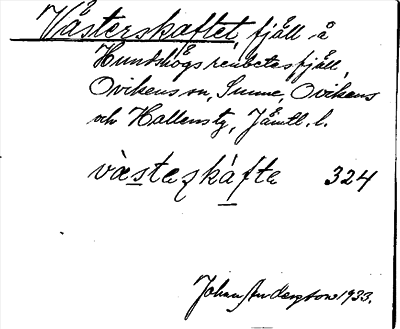 Västerskaftet, fjäll å
Hundshögs renbetesfjäll,
Ovikens sn, Sunne, Ovikens
och Hallens tg, Jämtl. l.
vàsteskáfta 324
Johan Anderzson 1933.